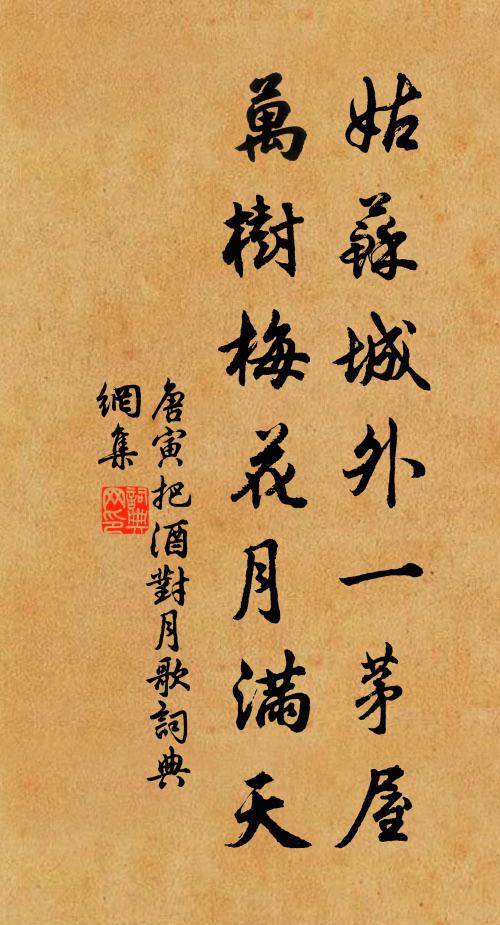 姑蘇城外一茅屋
萬樹梅花月滿天
唐寅把酒對月歌詞典
網集
詞典
网印